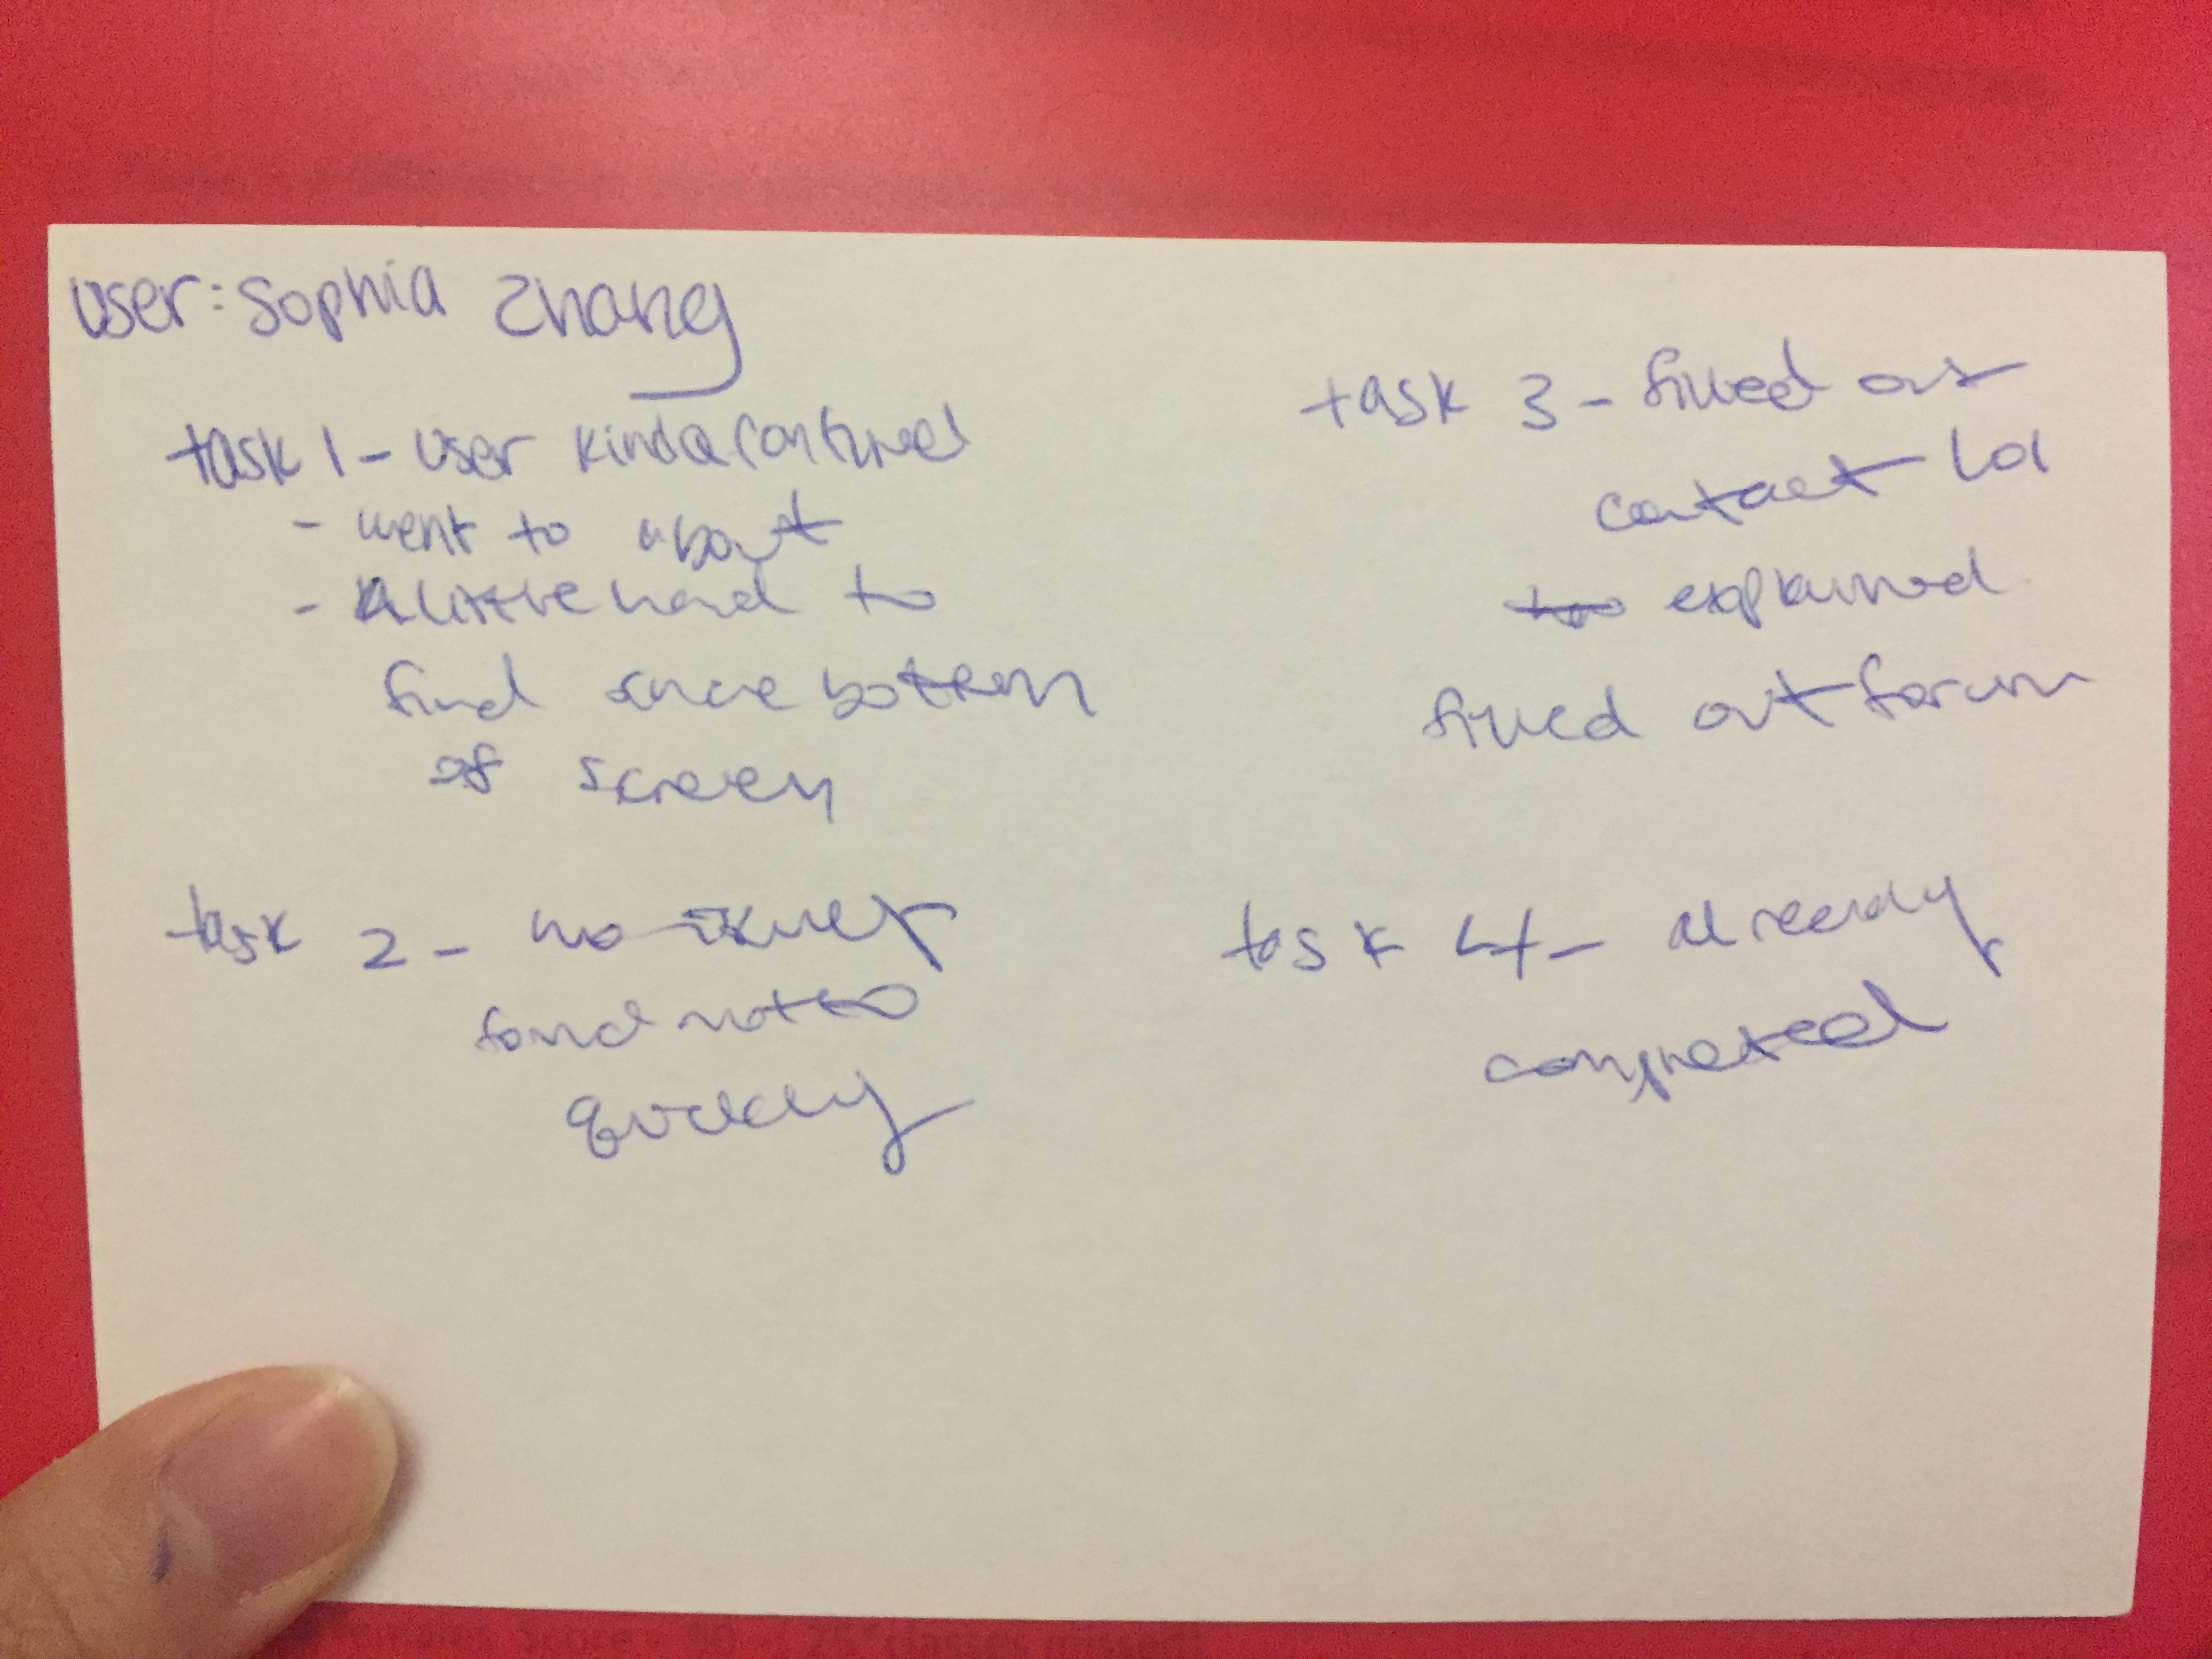 User: Sophia Zhang
task 1 - user kinda confused
- went to about
- a little hard to
find since bottom
of screen
task 2 -
found
quickly
task 3 - filled out
contact lol
explained
filled out form
task 4 - already
completed